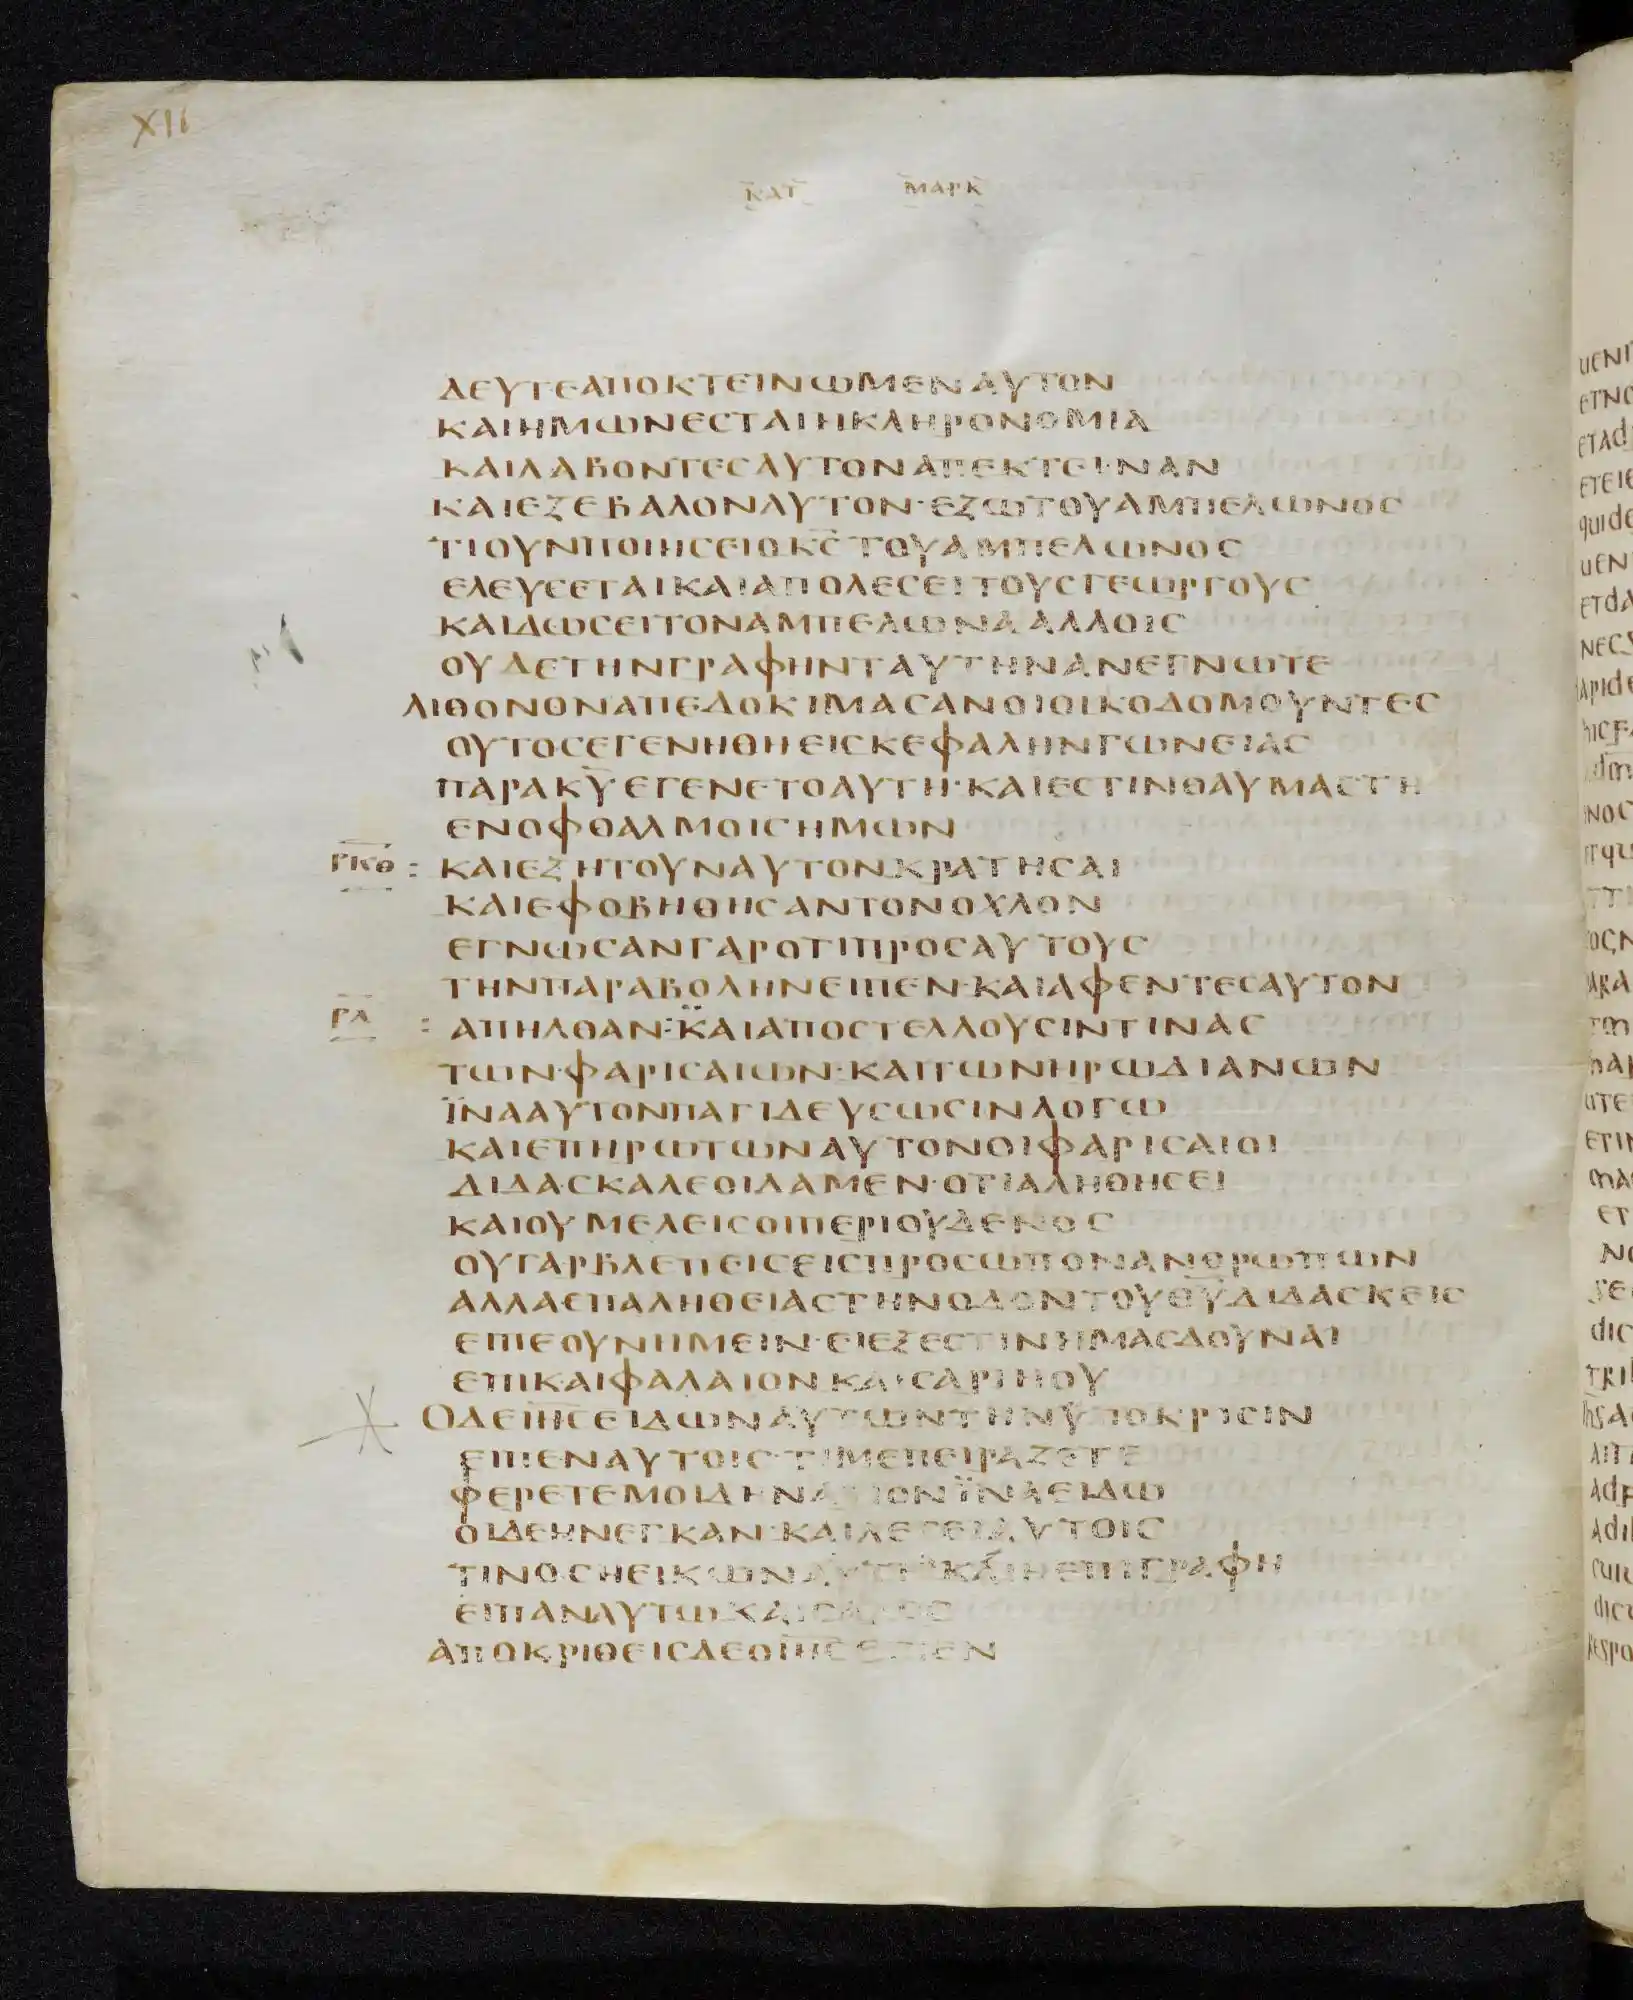 XII
ΚΑΤ ΜΑΡΚ
ΔΕΥΤΕΑΠΟΚΤΕΙΝΩΜΕΝΑΥΤΟΝ
ΚΑΙΗΜΩΝΕϹΤΑΙΗΚΛΗΡΟΝΟΜΙΑ
ΚΑΙΛΑΒΟΝΤΕϹΑΥΤΟΝΑΠΕΚΤΕΙΝΑΝ
ΚΑΙΕΞΕΒΑΛΟΝΑΥΤΟΝ·ΕΞΩΤΟΥΑΜΠΕΛΩΝΟϹ
ΤΙΟΥΝΠΟΙΗϹΕΙΟΚ̅Ϲ̅ΤΟΥΑΜΠΕΛΩΝΟϹ
ΕΛΕΥϹΕΤΑΙΚΑΙΑΠΟΛΕϹΕΙΤΟΥϹΓΕΩΡΓΟΥϹ
ΚΑΙΔΩϹΕΙΤΟΝΑΜΠΕΛΩΝΑΑΛΛΟΙϹ
ΟΥΔΕΤΗΝΓΡΑΦΗΝΤΑΥΤΗΝΑΝΕΓΝΩΤΕ
ΛΙΘΟΝΟΝΑΠΕΔΟΚΙΜΑϹΑΝΟΙΟΙΚΟΔΟΜΟΥΝΤΕϹ
ΟΥΤΟϹΕΓΕΝΗΘΗΕΙϹΚΕΦΑΛΗΝΓΩΝΕΙΑϹ
ΠΑΡΑΚ̅Υ̅ΕΓΕΝΕΤΟΑΥΤΗ·ΚΑΙΕϹΤΙΝΘΑΥΜΑϹΤΗ
ΕΝΟΦΘΑΛΜΟΙϹΗΜΩΝ
ΡΚΘ : ΚΑΙΕΖΗΤΟΥΝΑΥΤΟΝΚΡΑΤΗϹΑΙ
ΚΑΙΕΦΟΒΗΘΗϹΑΝΤΟΝΟΧΛΟΝ
ΕΓΝΩϹΑΝΓΑΡΟΤΙΠΡΟϹΑΥΤΟΥϹ
ΤΗΝΠΑΡΑΒΟΛΗΝΕΙΠΕΝ·ΚΑΙΑΦΕΝΤΕϹΑΥΤΟΝ
ΡΛ : ΑΠΗΛΘΑΝ:ΚΑΙΑΠΟϹΤΕΛΛΟΥϹΙΝΤΙΝΑϹ
ΤΩΝ·ΦΑΡΙϹΑΙΩΝ·ΚΑΙΤΩΝΗΡΩΔΙΑΝΩΝ
ΪΝΑΑΥΤΟΝΠΑΓΙΔΕΥϹΩϹΙΝΛΟΓΩ
ΚΑΙΕΠΗΡΩΤΩΝΑΥΤΟΝΟΙΦΑΡΙϹΑΙΟΙ
ΔΙΔΑϹΚΑΛΕΟΙΔΑΜΕΝ·ΟΤΙΑΛΗΘΗϹΕΙ
ΚΑΙΟΥΜΕΛΕΙϹΟΙΠΕΡΙΟΥΔΕΝΟϹ
ΟΥΓΑΡΒΛΕΠΕΙϹΕΙϹΠΡΟϹΩΠΟΝΑΝΘΡΩΠΩΝ
ΑΛΛΑΕΠΑΛΗΘΕΙΑϹΤΗΝΟΔΟΝΤΟΥΘ̅Υ̅ΔΙΔΑϹΚΕΙϹ
ΕΠΙΕΟΥΝΗΜΕΙΝ·ΕΙΕΞΕϹΤΙΝΗΜΑϹΔΟΥΝΑΙ
ΕΠΙΚΑΙΦΑΛΑΙΟΝΚΑΙϹΑΡΙΗΟΥ
ΟΔΕΙΗ̅Ϲ̅ΕΙΔΩΝΑΥΤΩΝΤΗΝΥΠΟΚΡΙϹΙΝ
ΕΙΠΕΝΑΥΤΟΙϹ·ΤΙΜΕΠΕΙΡΑΖΕΤΕ
ΦΕΡΕΤΕΜΟΙΔΗΝΑΡΙΟΝΪΝΑΕΙΔΩ
ΟΙΔΕΗΝΕΓΚΑΝ·ΚΑΙΛΕΓΕΙΑΥΤΟΙϹ
ΤΙΝΟϹΗΕΙΚΩΝΑΥΤΗΚΑΙΗΕΠΙΓΡΑΦΗ
ΕΙΠΑΝΑΥΤΩΚΑΙϹΑΡΟϹ
ΑΠΟΚΡΙΘΕΙϹΔΕΟΙΗ̅Ϲ̅ΕΙΠΕΝ